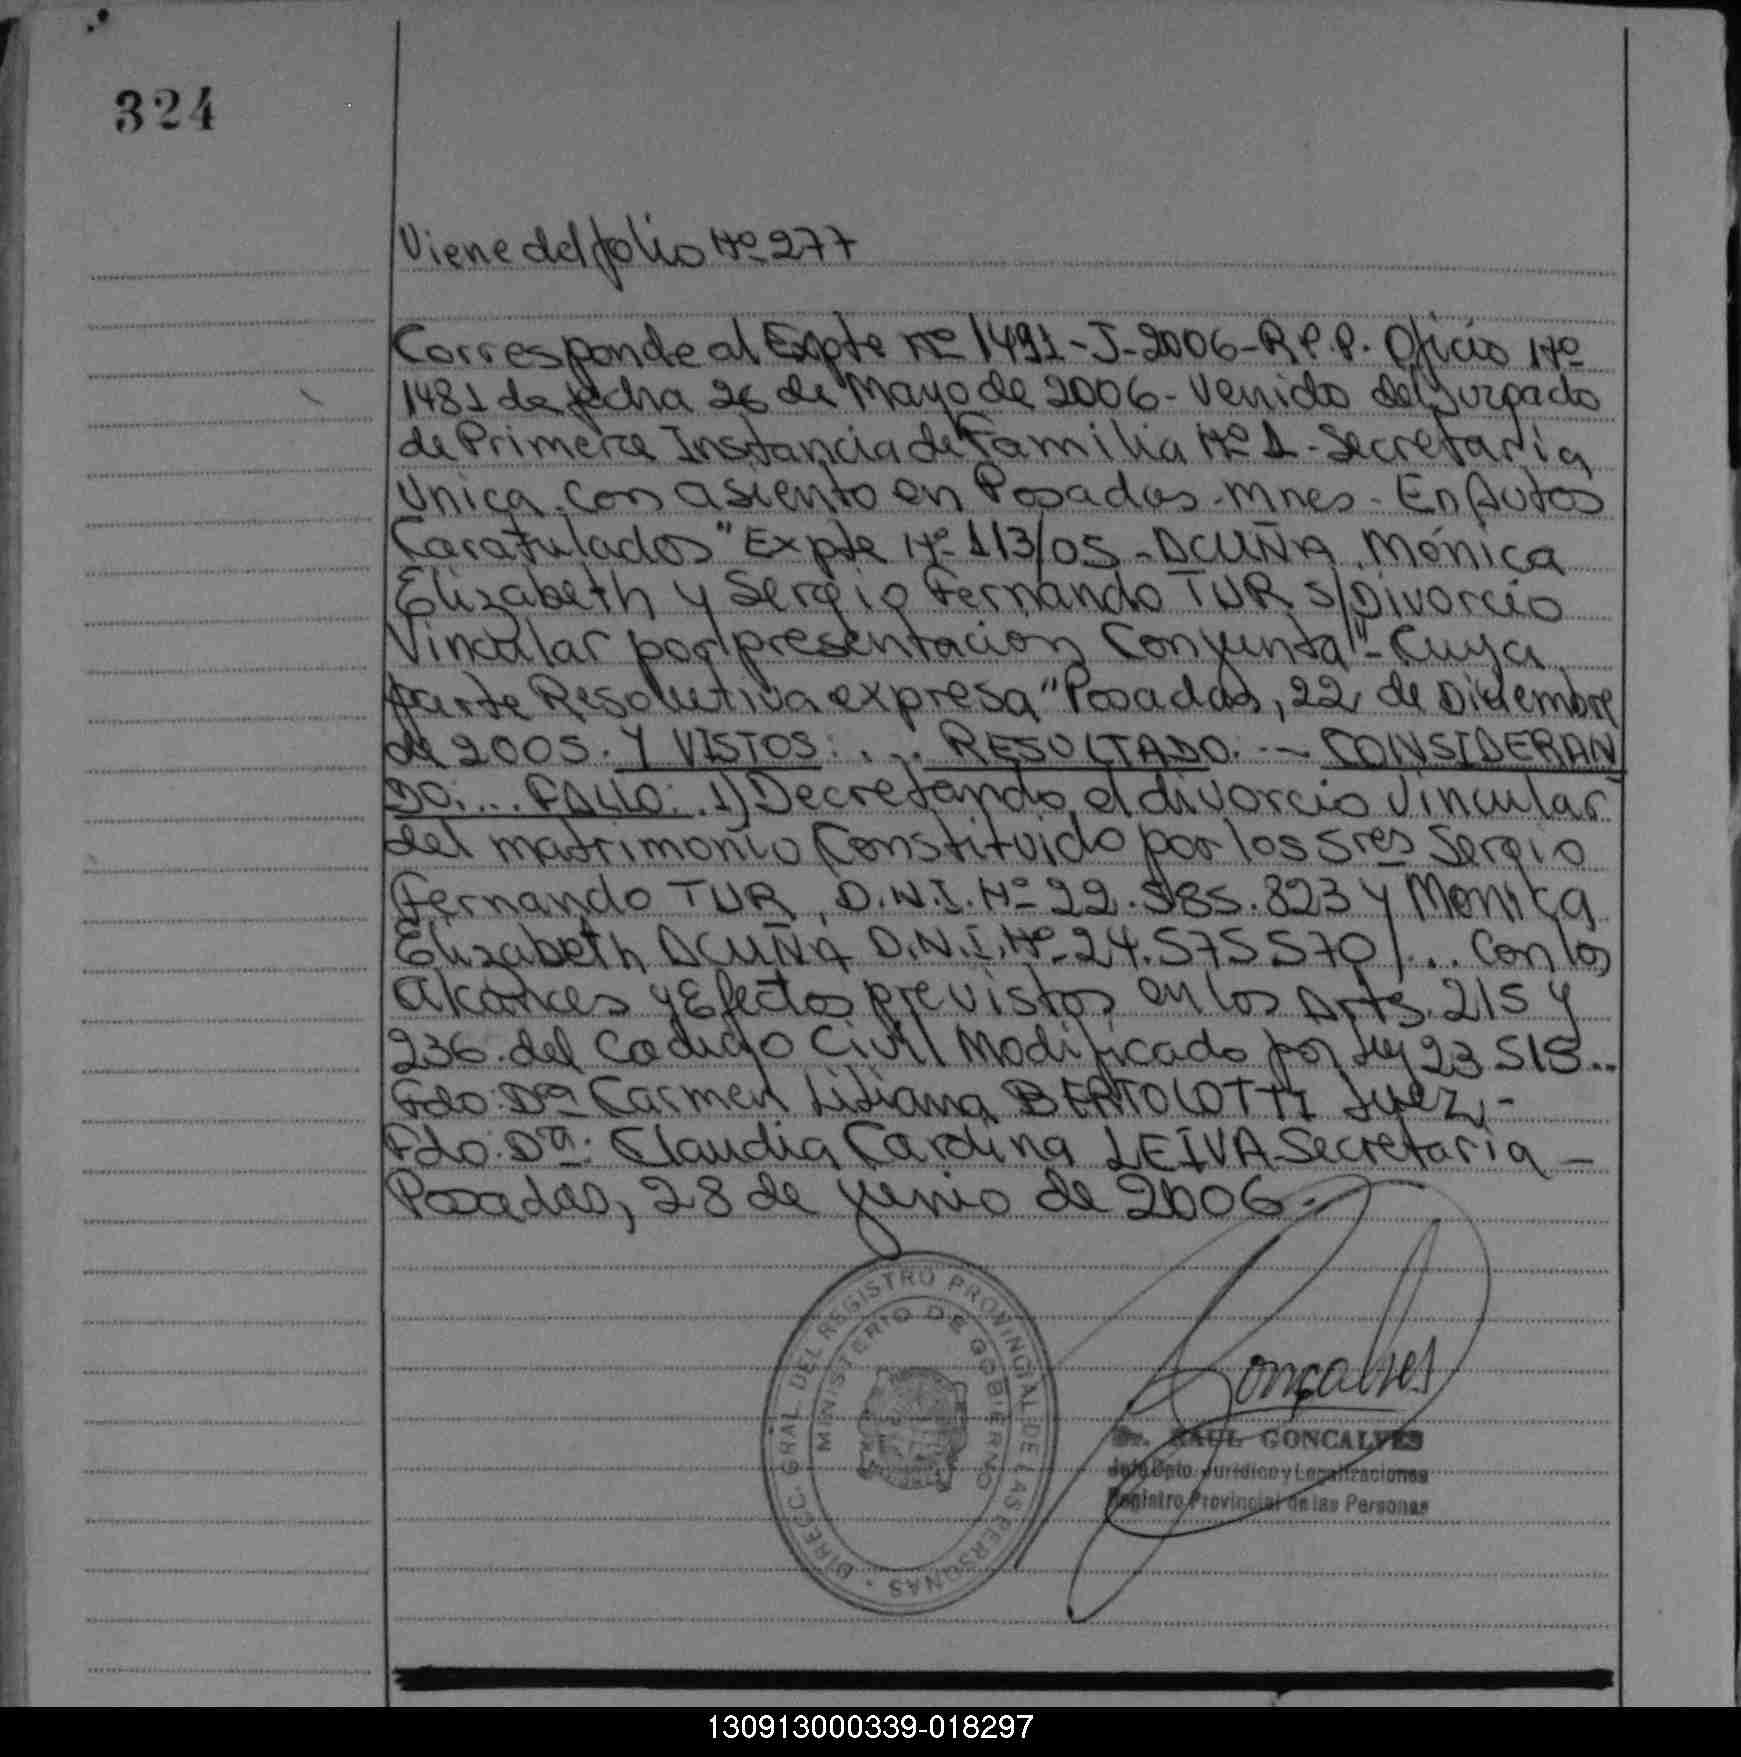 324
Viene del folio Nº 277
Corresponde al Expte Nº 1491-J-2006-R.P.P. Oficio Nº
1481 de fecha 26 de Mayo de 2006- Venido del Juzgado
de Primera Instancia de Familia Nº 1- Secretaria
Unica, con asiento en Posadas-Mnes- En Autos
Caratulados "Expte Nº 113/05 - ACUÑA, Mónica
Elizabeth y Sergio Fernando TUR S/Divorcio
Vincular por presentación Conjunta"- Cuya
parte Resolutiva expresa "Posadas, 22 de Diciembre
de 2005. Y VISTOS: ... RESULTADO. -- CONSIDERAN
DO: ... FALLO: 1) Decretando el divorcio Vincular
del matrimonio Constituido por los Sres Sergio
Fernando TUR, D.N.I. Nº 22.585.823 y Monica
Elizabeth ACUÑA D.N.I. Nº 24.575.570/... con los
alcances y Efectos previstos en los Arts. 215 y
236 del Codigo Civil Modificado por Ley 23.515..
Fdo. Dra Carmen Liliana BERTOLOTTI Juez,-
Fdo. Dra: Claudia Carolina LEIVA Secretaria -
Posadas, 28 de junio de 2006.-
DIREC. GRAL. DEL REGISTRO PROVINCIAL DE LAS PERSONAS
MINISTERIO DE GOBIERNO
Goncalves
Dr. RAUL GONCALVES
Jefe Dpto. Jurídico y Legalizaciones
Registro Provincial de las Personas
130913000339-018297